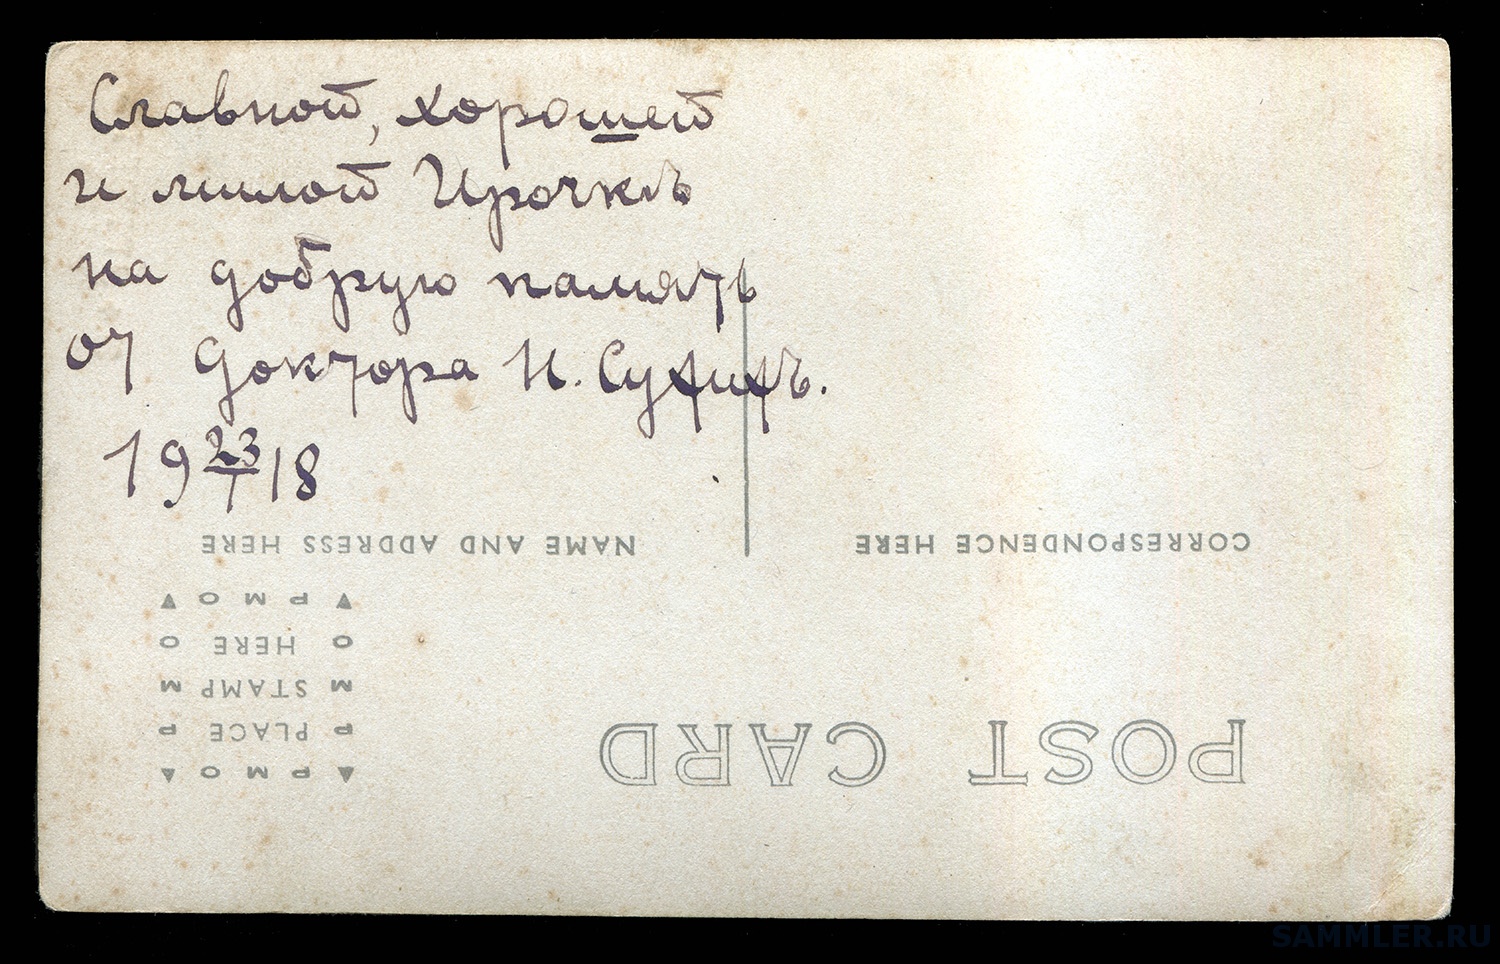 Славной, хорошей
и милой Ирочкѣ
на добрую память
от доктора И.
19 23/I 18
NAME AND ADDRESS HERE
CORRESPONDENCE HERE
▲ P M O ▲
O HERE O
M STAMP M
P PLACE P
▲ P M O ▲
POST CARD
SAMMLER.RU